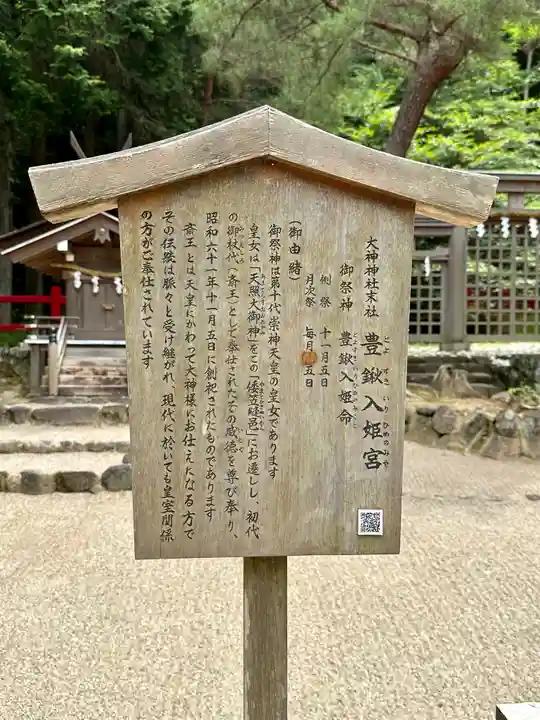 大神神社末社 豊鍬入姫宮
とよすきいりひめのみや
御祭神 豊鍬入姫命
とよすきいりひめのみこと
例祭 十一月五日
月次祭 毎月 五日
(御由緒)
御祭神は第十代崇神天皇の皇女であります
皇女は「天照大御神」をこの「倭笠縫邑」にお遷しし、初代
の御杖代(斎王)として奉仕されたその威徳を尊び奉り、
昭和六十一年十一月五日に創祀されたものであります
斎王とは天皇にかわって大神様にお仕えになる方で
その伝統は脈々と受け継がれ、現代に於いても皇室関係
の方がご奉仕されています